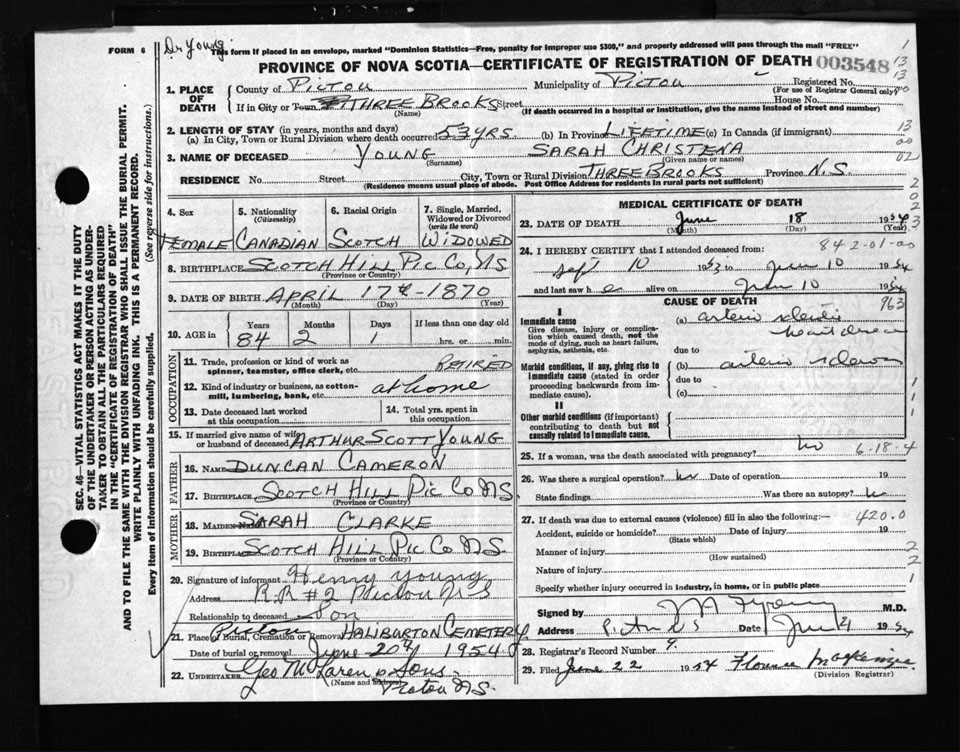 FORM 6
Dr Young
This form if placed in an envelope, marked "Dominion Statistics—Free, penalty for improper use $300," and properly addressed will pass through the mail "FREE"
PROVINCE OF NOVA SCOTIA—CERTIFICATE OF REGISTRATION OF DEATH 003548
1. PLACE OF DEATH
County of Pictou Municipality of Pictou Registered No.
(For use of Registrar General only)
If in City or Town THREE BROOKS Street House No.
(Name) (If death occurred in a hospital or institution, give the name instead of street and number)
2. LENGTH OF STAY (in years, months and days)
(a) In City, Town or Rural Division where death occurred 53 YRS (b) In Province LIFETIME (c) In Canada (if immigrant)
3. NAME OF DECEASED YOUNG SARAH CHRISTENA
(Surname) (Given name or names)
RESIDENCE No. Street City, Town or Rural Division THREE BROOKS Province N.S.
(Residence means usual place of abode. Post Office Address for residents in rural parts not sufficient)
4. Sex 5. Nationality (Citizenship) 6. Racial Origin 7. Single, Married, Widowed or Divorced (write the word)
FEMALE CANADIAN SCOTCH WIDOWED
8. BIRTHPLACE SCOTCH HILL PIC CO, NS
(Province or Country)
9. DATE OF BIRTH APRIL 17th -1870
(Month) (Day) (Year)
10. AGE in Years Months Days If less than one day old
84 2 1 hrs. or min.
OCCUPATION
11. Trade, profession or kind of work as spinner, teamster, office clerk, etc. RETIRED
12. Kind of industry or business, as cotton-mill, lumbering, bank, etc. at home
13. Date deceased last worked at this occupation
14. Total yrs. spent in this occupation
15. If married give name of wife or husband of deceased ARTHUR SCOTT YOUNG
FATHER
16. NAME DUNCAN CAMERON
17. Birthplace SCOTCH HILL PIC CO NS.
(Province or Country)
MOTHER
18. MAIDEN NAME SARAH CLARKE
19. Birthplace SCOTCH HILL PIC CO NS
(Province or Country)
20. Signature of informant Henry Young
Address R.R #2 Pictou N S
Relationship to deceased Son
21. Place of Burial, Cremation or Removal Pictou HALIBURTON CEMETERY
Date of burial or removal June 20th 1954
22. UNDERTAKER Geo McLaren & Sons
(Name and address) Pictou NS.
MEDICAL CERTIFICATE OF DEATH
23. DATE OF DEATH June 18 1954
(Month) (Day) (Year)
24. I HEREBY CERTIFY that I attended deceased from: 842-01-00
Sept 10 1953 to June 10 1954
and last saw h e alive on June 10 1954
CAUSE OF DEATH 963
I
Immediate cause
Give disease, injury or complication which caused death, not the mode of dying, such as heart failure, asphyxia, asthenia, etc.
(a) heart disease
due to
Morbid conditions, if any, giving rise to immediate cause (stated in order proceeding backwards from immediate cause).
(b)
due to
(c)
II
Other morbid conditions (if important) contributing to death but not causally related to immediate cause.
25. If a woman, was the death associated with pregnancy? no 6-18-4
26. Was there a surgical operation? no Date of operation 19
State findings Was there an autopsy?
27. If death was due to external causes (violence) fill in also the following:— 420.0
Accident, suicide or homicide? Date of injury 19
(State which)
Manner of injury
(How sustained)
Nature of injury
Specify whether injury occurred in industry, in home, or in public place
Signed by M.D.
Address Pictou NS Date June 21 1954
28. Registrar's Record Number 9.
29. Filed June 22 1954 Florence MacKenzie
(Division Registrar)
SEC. 46—VITAL STATISTICS ACT MAKES IT THE DUTY
OF THE UNDERTAKER OR PERSON ACTING AS UNDER-
TAKER TO OBTAIN ALL THE PARTICULARS REQUIRED
IN THE "CERTIFICATE OF REGISTRATION OF DEATH"
AND TO FILE THE SAME WITH THE DIVISION REGISTRAR WHO SHALL ISSUE THE BURIAL PERMIT.
WRITE PLAINLY WITH UNFADING INK. THIS IS A PERMANENT RECORD.
Every item of Information should be carefully supplied. (See reverse side for instructions.)